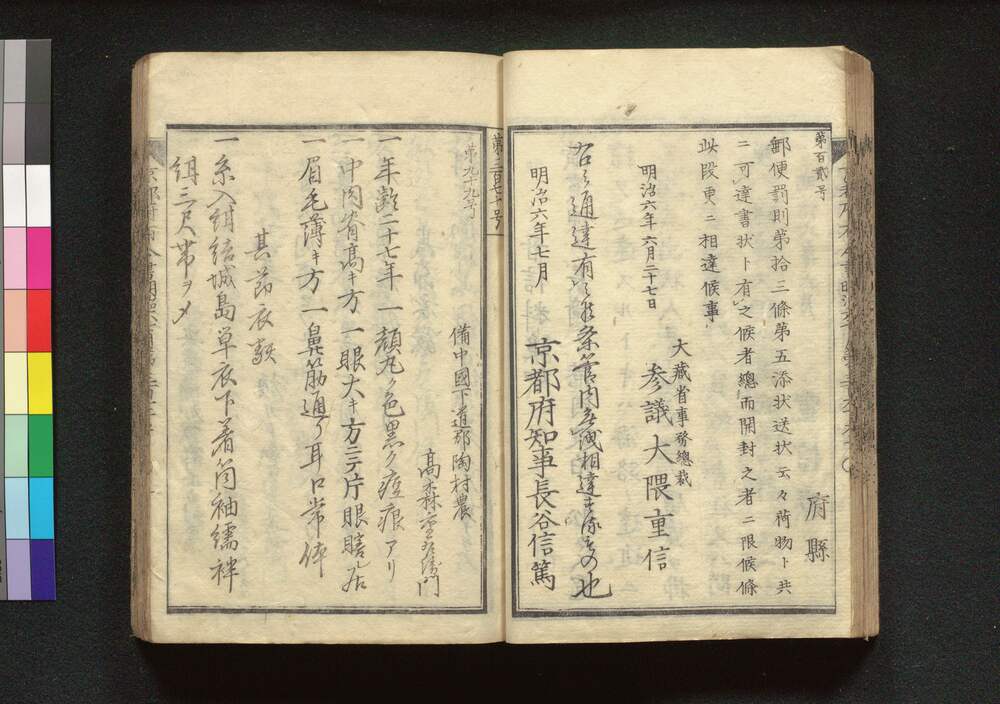 第百貳号
府縣
郵便罰則第拾三條第五添状送状云々荷物ト共
ニ可違書状ト有之候者總而開封之者ニ限候條
此段更ニ相違候事
明治六年六月二十七日
大蔵省事務總裁
参議大隈重信
右之通達有之候条管内無洩相達するもの也
明治六年七月
京都府知事長谷信篤
第二百七十号
第九十九号
備中國下道郡陶村農
髙森
衛門
一年齡二十七年一顔丸ク色黒ク痘痕アリ
一中肉脊髙キ方一眼大キ方ニテ片眼瞎居
一眉毛薄キ方一鼻筋通リ耳口常体
其節衣類
一糸入紺結城島単衣下着筒袖襦袢
紺三尺帯ヲメ